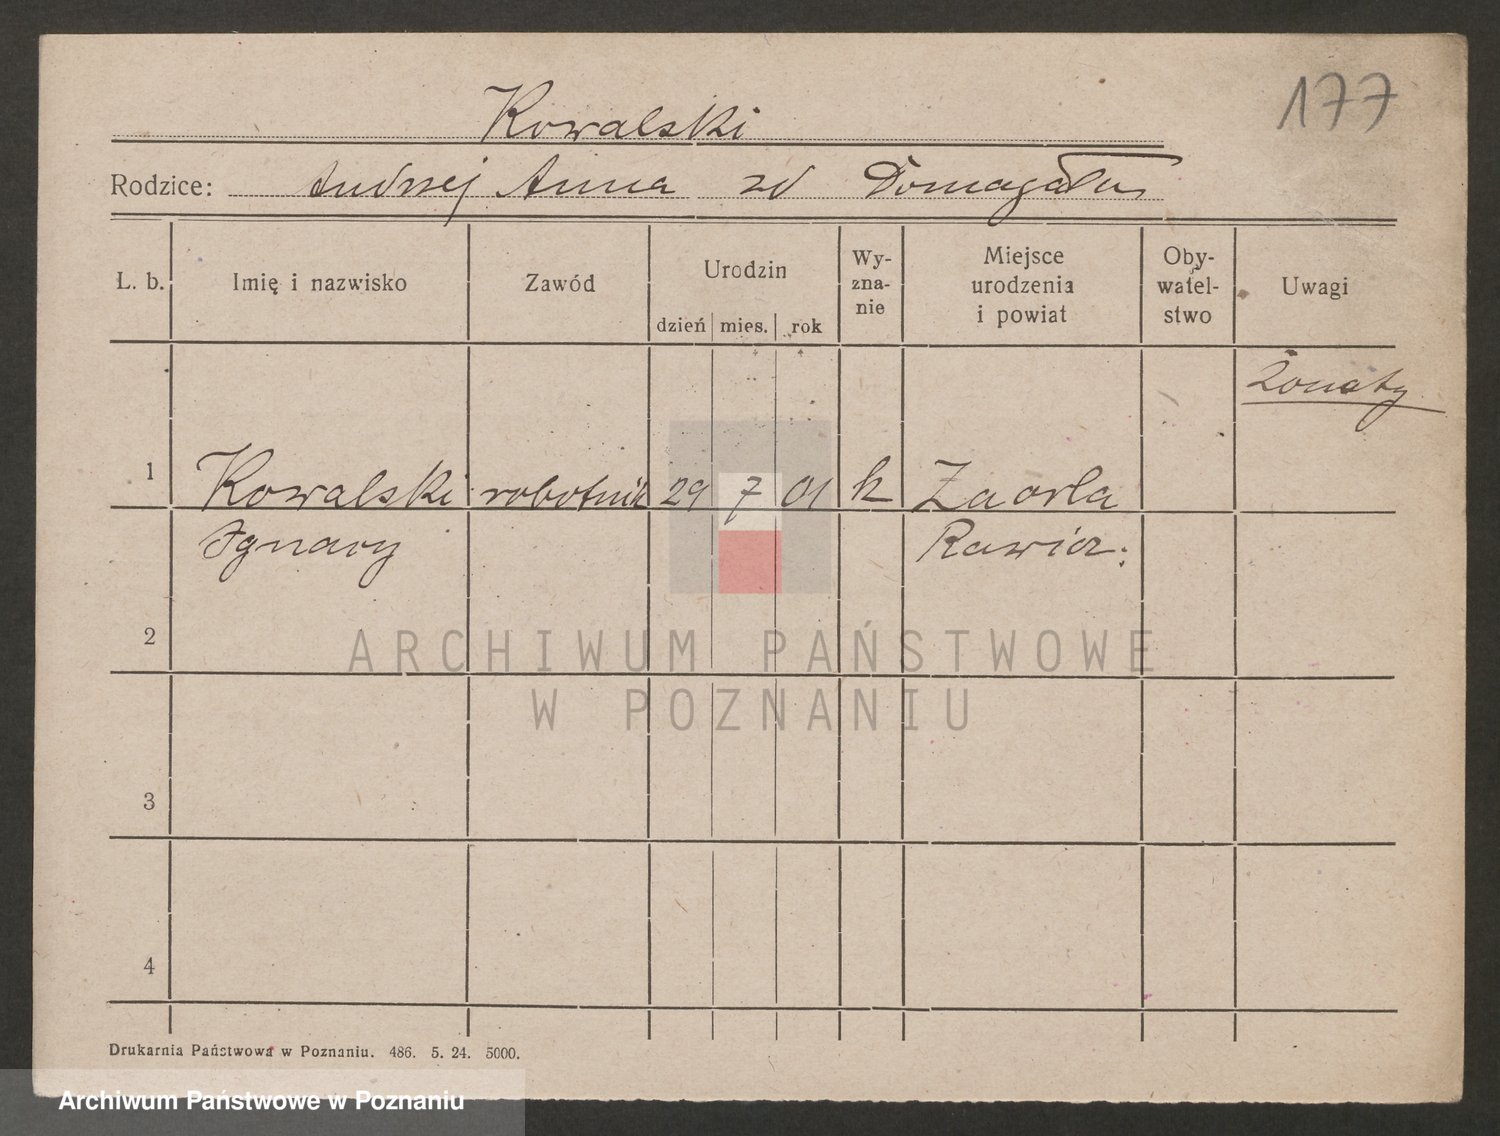 177
Kowalski
Rodzice: Andrzej Anna zd Domagała
L. b. Imię i nazwisko Zawód Urodzin dzień mies. rok Wy- zna- nie Miejsce urodzenia i powiat Oby- watel- stwo Uwagi
Żonaty
1 Kowalski robotnik 29 7 01 k Zaorla
Ignacy Rawicz.
2
3
4
Drukarnia Państwowa w Poznaniu. 486. 5. 24. 5000.
ARCHIWUM PAŃSTWOWE
W POZNANIU
Archiwum Państwowe w Poznaniu